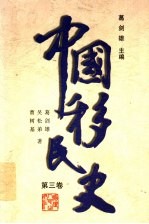 葛剑雄 主编
中国移民史
葛剑雄
吴松弟
曹树基 著
第三卷